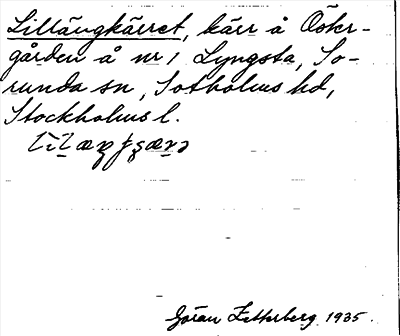 Lillängkärret, kärr å Öster-
gården å nr 1 Lyngsta, So-
runda sn, Sotholms hd,
Stockholms l.
Göran Zetterberg 1935.